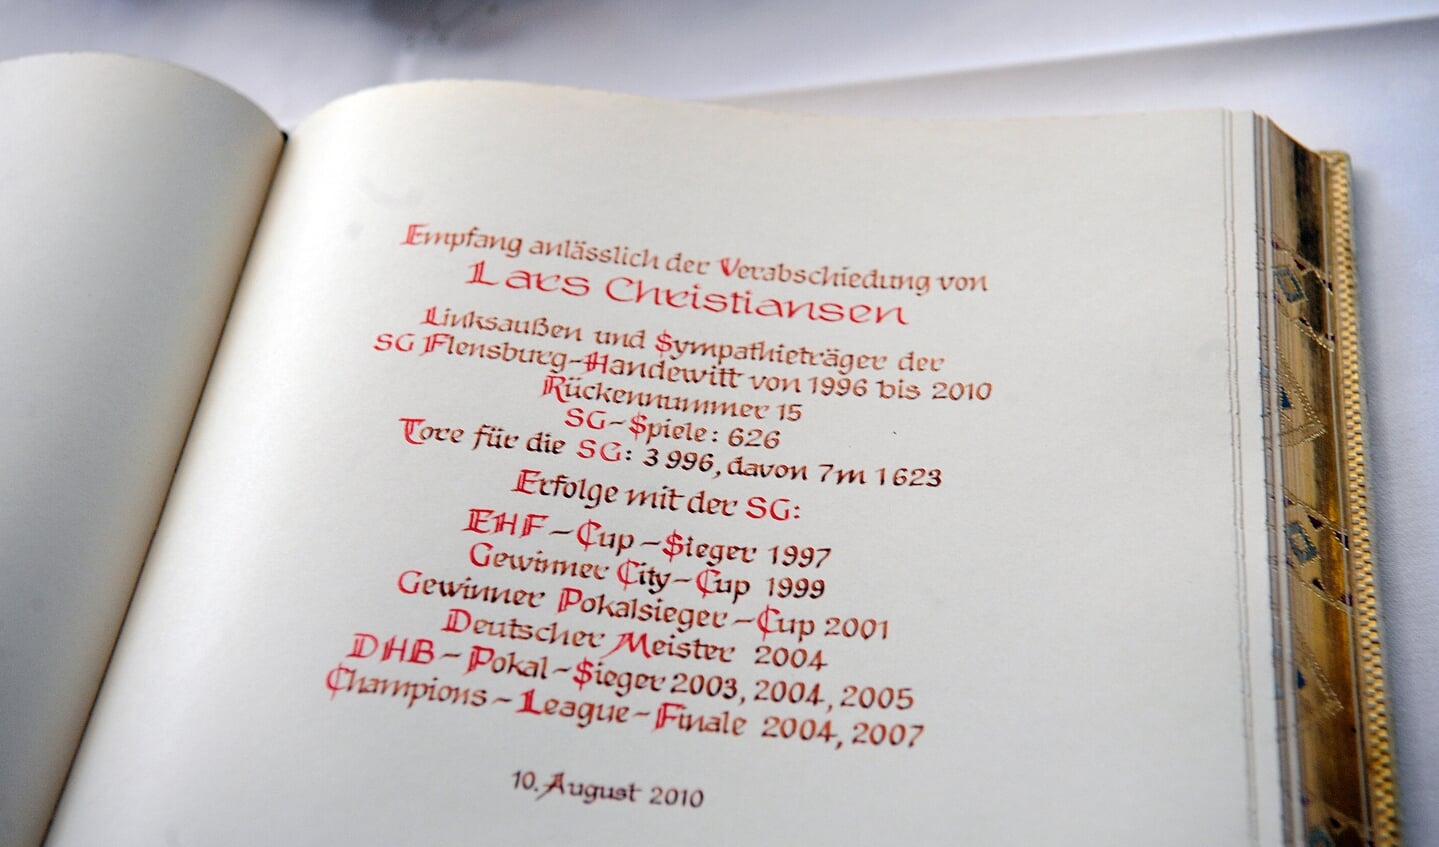 Empfang anlässlich der Verabschiedung von
Lars Christiansen
Linksaußen und Sympathieträger der
SG Flensburg-Handewitt von 1996 bis 2010
Rückennummer 15
SG-Spiele: 626
Tore für die SG: 3 996, davon 7m 1623
Erfolge mit der SG:
EHF-Cup-Sieger 1997
Gewinner City-Cup 1999
Gewinner Pokalsieger-Cup 2001
Deutscher Meister 2004
DHB-Pokal-Sieger 2003, 2004, 2005
Champions-League-Finale 2004, 2007
10. August 2010